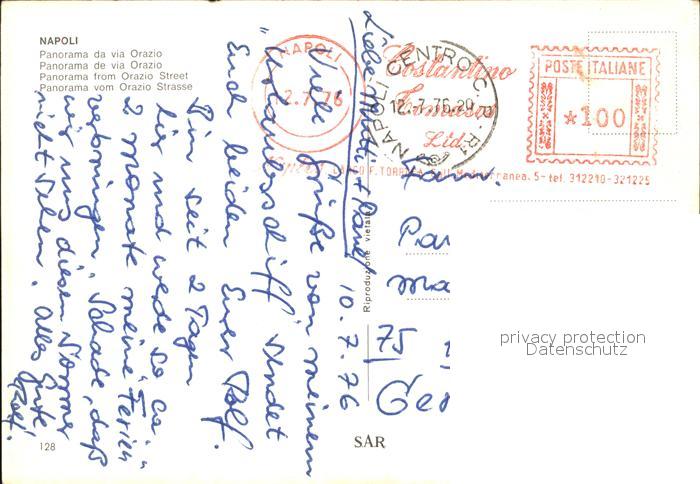 NAPOLI
Panorama da via Orazio
Panorama de via Orazio
Panorama from Orazio Street
Panorama vom Orazio Strasse
NAPOLI
12.7.76
Costantino
Tomasos
Ltd.
NAPOLI CENTRO C.
12.-7.76.20
POSTE ITALIANE
*100
LARGO F.TORRACA
Mediterranea. 5-tel. 312210-321225
Liebe + Paul
10.7.76
Viele Grüße von meinem
"Urlaubsschiff" sendet
Euch beiden Euer Rolf.
Bin seit 2 Tagen
hier und werde so ca.
2 Monate meine "Ferien"
verbringen. Schade, daß
wir uns diesen Sommer
nicht sehen. Alles Gute
Rolf.
Fam.
Pa
Ma
75
Ge
Riproduzione vietata
SAR
128
privacy protection
Datenschutz